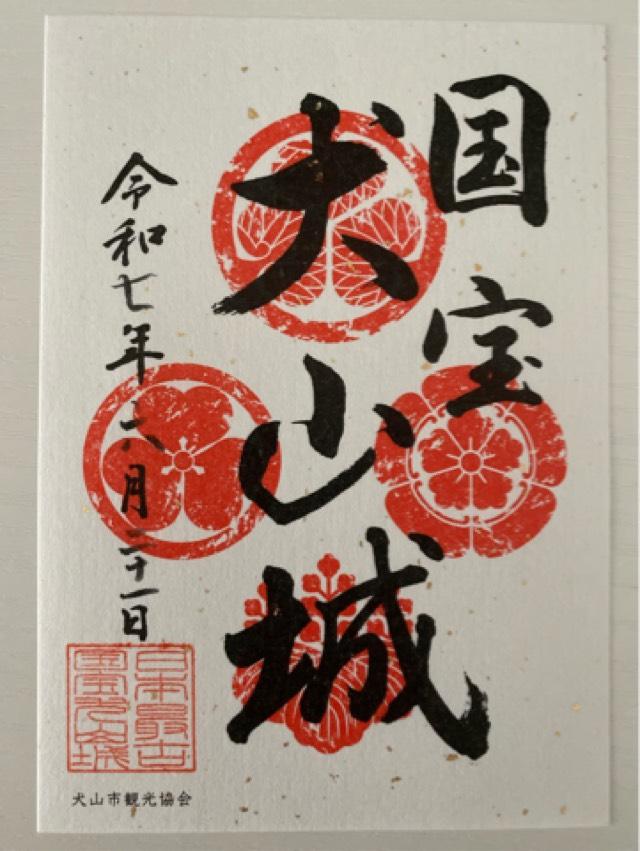 国宝
犬山城
令和七年六月二十一日
日本最古
国宝犬山城
犬山市観光協会